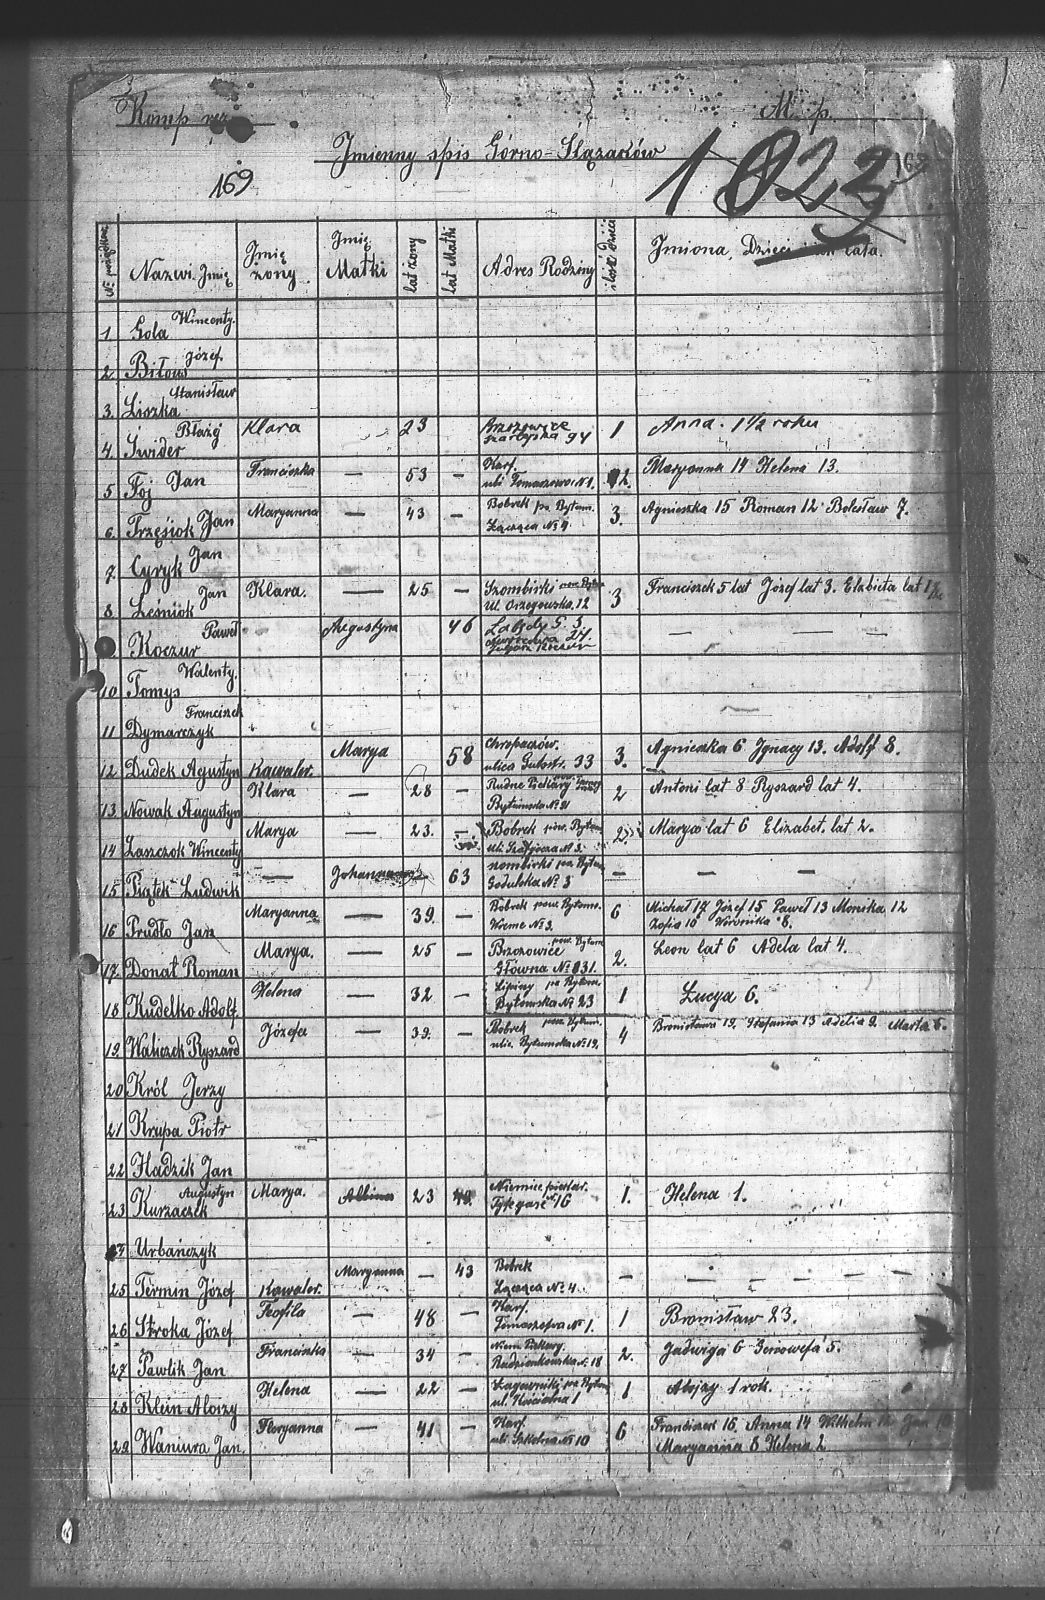 Komp
M. p.
Imienny spis Górno-Ślązaków
169
1023
169
№ porządkow.
Nazwi. Imię
Imię żony
Imię Matki
lat żony
lat Matki
Adres Rodziny
ilość Dzieci
Imiona, Dzieci i ich lata.
1 Gola Wincenty.
2. Józef.
3. Liszka Stanisław
4. Świder Błażej Klara 23 Brzozowice 94 1 Anna. 1 1/2 roku
5 Foj Jan Franciszka — 53 — Karf. ul. Tomaszewa № 1. 2. Maryanna 14 Helena 13.
6. Trzęsiok Jan Maryanna — 43 — Bobrek po. Bytom. Łącząca № 4 3. Agnieszka 15 Roman 12 Bolesław 7.
7. Cyryk Jan
8. Leśniok Jan Klara. — 25 — Szombirki pow. Bytom Ul. Orzegowska. 12 3 Franciszek 5 lat Józef lat 3. Elżbieta lat
Koczur Paweł Augustyna 46 Łabędy 24. — — — —
10 Tomys Walenty.
11 Dymarczyk Franciszek
12 Dudek Agustyn Kawaler. Marya 58 Chropaczów. ulica 33 3. Agnieszka 6 Ignacy 13. Adolf 8.
13 Nowak Augustyn Klara — 28 — Rudne Piekary Bytomska № 21 2 Antoni lat 8 Ryszard lat 4.
14 Łaszczok Wincenty Marya — 23. Bobrek pow. Bytom ul. № 3. 2. Marya lat 6 Elizabet. lat 2.
15 Piątek Ludwik — Johanna 63 Szombirki po. Bytom Godulska № 3 — — — —
16 Prudło Jan Maryanna — 39. — Bobrek pow. Bytom. № 3. 6 Michał 17 Józef 15 Paweł 13 Monika 12
Zofia 10 Weronika 8.
17. Donat Roman Marya. — 25 — Brzozowice pow. Bytom Główna № 31. 2. Leon lat 6 Adela lat 4.
18 Kudełko Adolf. Helena — 32 — Lipiny po Bytom Bytomska № 23 1 Łucya 6.
19. Waliczek Ryszard Józefa — 39. — Bobrek pow. Bytom. ulic. Bytomska № 19. 4 Bronisława 19. Stefania 13 Adelia 9. Marta 6.
20 Król Jerzy
21 Krupa Piotr
22 Hadzik Jan
23 Kurzaczek Augustyn Marya. Albina 23 49. Niemiec. piekar. 16 1. Helena 1.
Urbańczyk
25 Termin Józef Kawaler. Maryanna — 43 Bobrek Łącząca № 4. — — — — — — —
26 Sroka Józef Teofila — 48 — Karf. Tomaszewa № 1. 1 Bronisław 23.
27 Pawlik Jan Franciszka — 34 — Niem. Piekary. Radzionkowska № 18 2. Jadwiga 6 Genowefa 5.
28 Klein Alojzy Helena — 22 — Łagiewniki po Bytom ul. Kościelna 1 1 Alojzy 1 rok.
29. Waniura Jan. Floryanna — 41 — Karf. ul. Szkolna № 10 6 Franciszek 16. Anna 14 Wilhelm Jan
Maryanna 8 Helena 2.